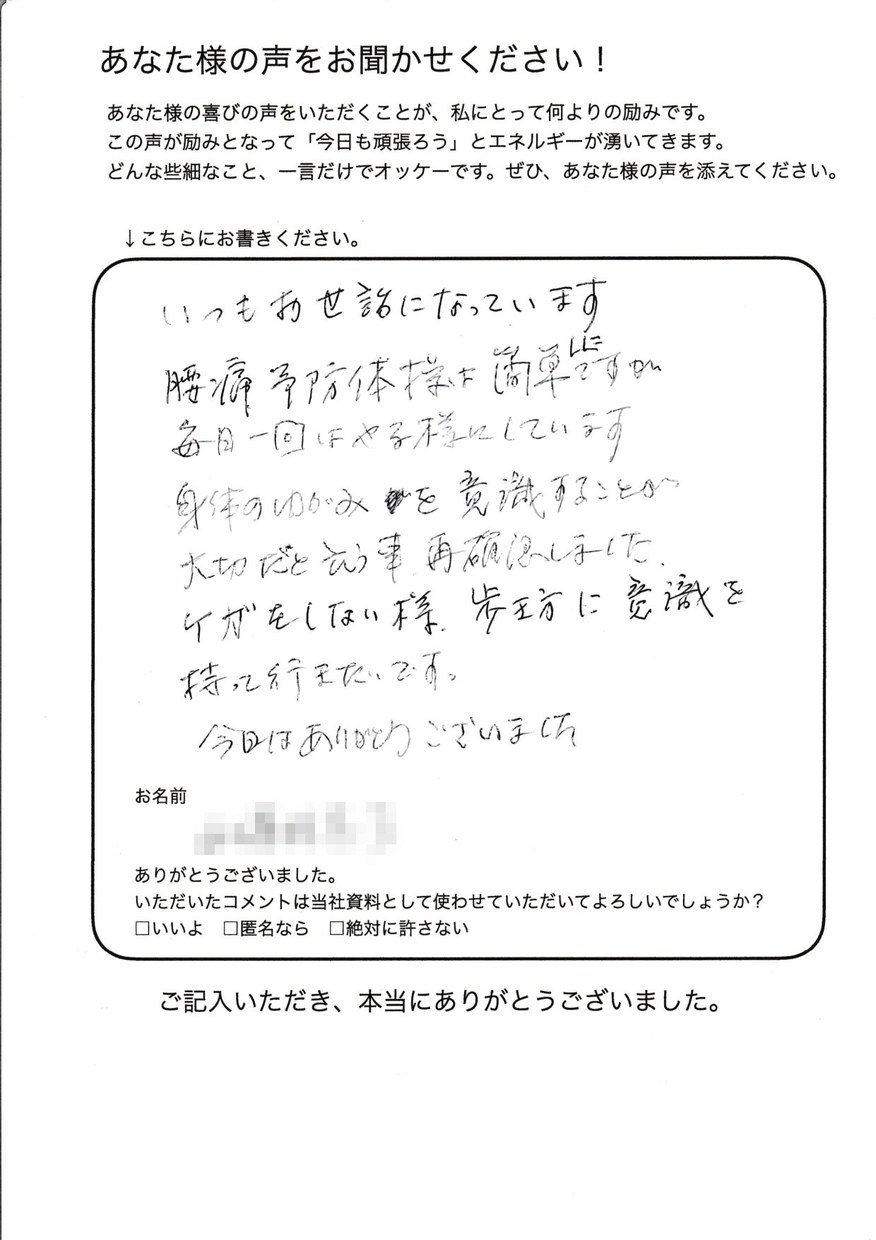 あなた様の声をお聞かせください！
あなた様の喜びの声をいただくことが、私にとって何よりの励みです。
この声が励みとなって「今日も頑張ろう」とエネルギーが湧いてきます。
どんな些細なこと、一言だけでオッケーです。ぜひ、あなた様の声を添えてください。
↓こちらにお書きください。
いつもお世話になっています
腰痛予防体様は簡単ですが
毎日一回はやる様にしています
身体のゆがみを意識することが
大切だと言う事再確認しました。
ケガをしない様、歩き方に意識を
持って行きたいです。
今日はありがとうございました
お名前
ありがとうございました。
いただいたコメントは当社資料として使わせていただいてよろしいでしょうか？
□いいよ　□匿名なら　□絶対に許さない
ご記入いただき、本当にありがとうございました。